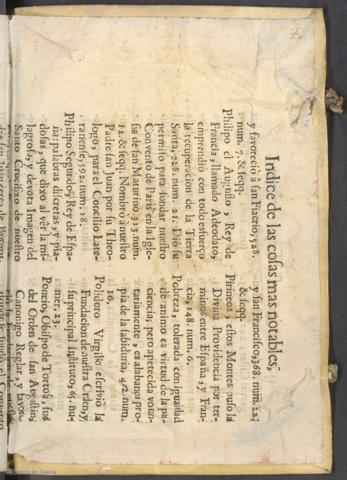 Indice de las cosas mas notables,
y favoreciò à san Fiacrio, 528.
num. 7. & seqq.
Philipo el Augusto, Rey de
Francia, llamado Adeodato,
emprendiò con todo esfuerço
la recuperacion de la Tierra
Santa, 228. num. 21. Diò su
permiso para fundar nuestro
Convento de Paris en la Igle-
sia de san Maturino, 313. num.
12. & seqq. Nombrò à nuestro
Padre san Juan por su Theo-
logo, para el Concilio Late-
ranense, 392. num. 18.
Philipo Segundo, Rey de Espa-
ña: palabras discretas, y pia-
dosas, que dixo al ver la mi-
lagrosa, y devota Imagen del
Santo Crucifixo de nuestro
y san Francisco, 368. num. 22.
& seqq.
Pirineos, estos Montes puso la
Divina Providencia por ter-
minos entre España, y Fran-
cia, 148. num. 6.
Pobreza, tolerada con igualdad
de animo es virtud de la pa-
ciencia; pero apetecida volun-
tariamente, es alabança pro-
pia de la sabiduria, 472. num.
126.
Polidoro Virgilio escriviò la
Fundacion de nuestra Orden, y
su principal Instituto, 65. nu-
mer. 235.
Poncio, Obispo de Tortosa, fue
del Orden de san Agustin,
Canonigo Reglar, y favor-